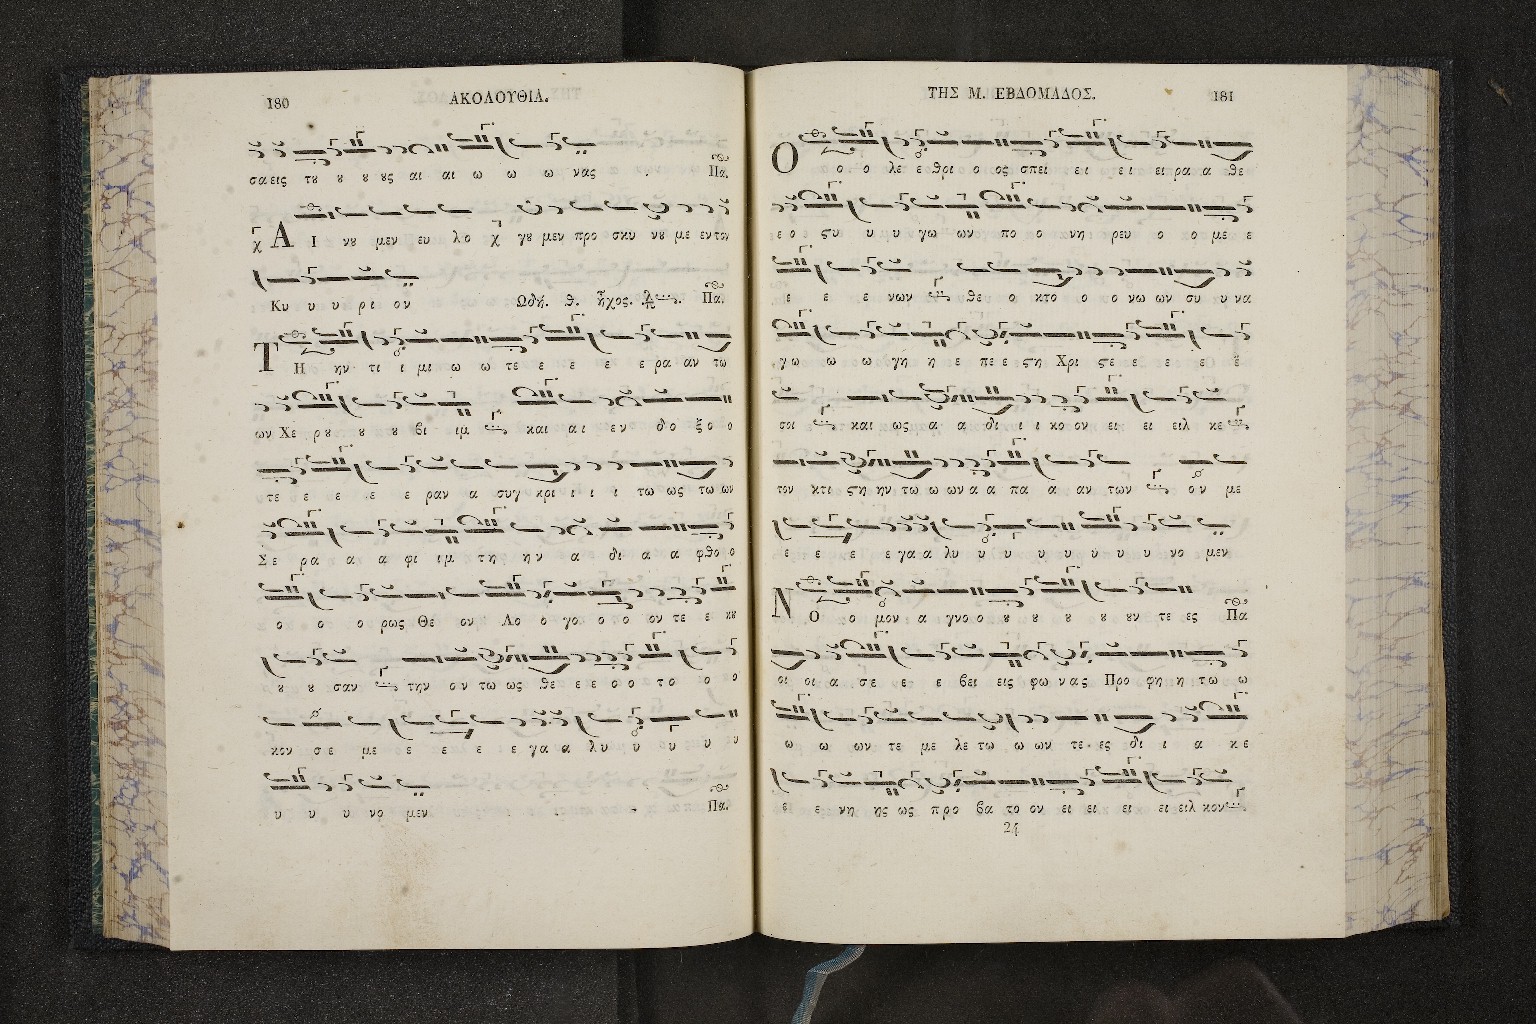 180 ΑΚΟΛΟΥΘΙΑ.
σα εις τȣ ȣ ȣ ȣς αι αι ω ω ω νας Πα.
Α Ι νȣ μεν ευ λο γȣ μεν προ σκυ νȣ με εν τον
Κυ υ υ ρι ον Ωδή. θ. ἦχος. Πα.
Τ Η ην τι ι μι ω ω τε ε ε ε ε ρα αν τω
ων Χε ρȣ ȣ ȣ βι ιμ και αι εν δο ξο ο
τε ε ε ε ε ραν α συγ κρι ι ι ι τω ως τω ων
Σε ρα α α φι ιμ τη ην α δι α α φθο ο
ο ο ο ρως Θε ον Λο ο γο ο ο ον τε ε κȣ
ȣ ȣ σαν την ον τω ως θε ε ε ο ο το ο ο
κον σε με ε ε ε ε γα α λυ υ υ υ υ
υ υ υ νο μεν Πα.
ΤΗΣ Μ. ΕΒΔΟΜΑΔΟΣ. 181
Ο ο ο λε ε θρι ο ος σπει ει ει ει ρα α θε
ε ο ς ϛυ υ υ γω ων πο ο νη ρευ ο ο με ε
ε ε ε νων θε ο κτο ο ο νω ων συ υ να
γω ω ω γη η ε πε ε ϛη Χρι ϛε ε ε ε ε
σοι και ως α α δι ι ι κο ον ει ει ειλ κε
τον κτι ϛη ην τω ω ων α α πα α αν των ον με
ε ε ε ε γα α λυ υ υ υ υ υ υ νο μεν
Ν Ο ο μον α γνο ο ȣ ȣ ȣ ȣ ȣν τε ες Πα
οι οι α σε ε ε βει εις φω νας Προ φη η τω ω
ω ω ων τε με λε τω ω ων τε ες δι ι α κε
ε ε νη ης ως προ βα το ον ει ει ει ει ειλ κον
24